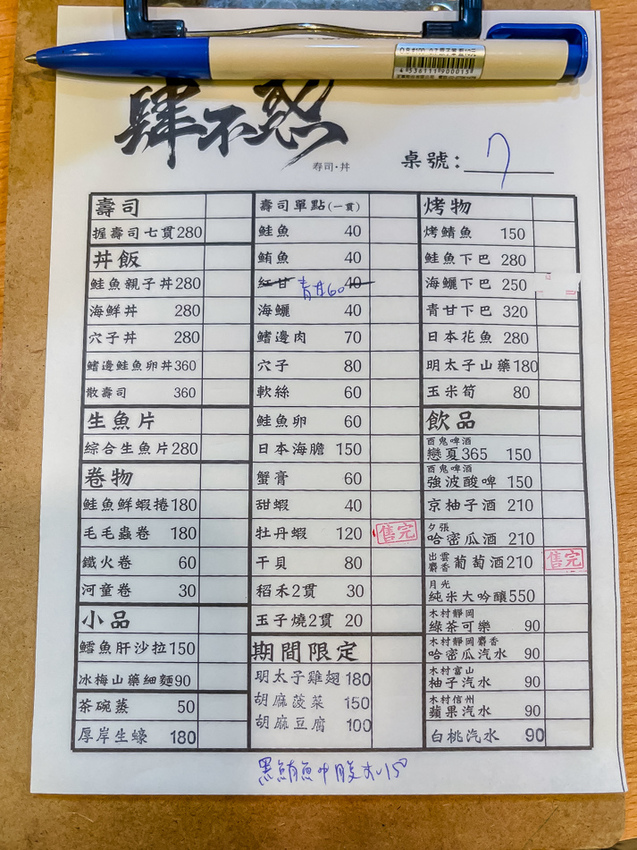 肆不惑
寿司・丼
桌號：7
壽司
握壽司七貫280
丼飯
鮭魚親子丼280
海鮮丼 280
穴子丼 280
鰭邊鮭魚卵丼360
散壽司 360
生魚片
綜合生魚片280
卷物
鮭魚鮮蝦捲180
毛毛蟲卷 180
鐵火卷 60
河童卷 30
小品
鱈魚肝沙拉150
冰梅山藥細麵90
茶碗蒸 50
厚岸生蠔 180
壽司單點(一貫)
鮭魚 40
鮪魚 40
紅甘 40
青甘60
海鱺 40
鰭邊肉 70
穴子 80
軟絲 60
鮭魚卵 60
日本海膽 150
蟹膏 60
甜蝦 40
牡丹蝦 120 售完
干貝 80
稻禾2貫 30
玉子燒2貫 20
期間限定
明太子雞翅 180
胡麻菠菜 150
胡麻豆腐 100
烤物
烤鯖魚 150
鮭魚下巴 280
海鱺下巴 250
青甘下巴 320
日本花魚 280
明太子山藥180
玉米筍 80
飲品
酉鬼啤酒
戀夏365 150
酉鬼啤酒
強波酸啤 150
京柚子酒 210
夕張
哈密瓜酒 210
出雲
麝香 葡萄酒210 售完
月光
純米大吟釀550
木村靜岡
綠茶可樂 90
木村靜岡麝香
哈密瓜汽水 90
木村富山
柚子汽水 90
木村信州
蘋果汽水 90
白桃汽水 90